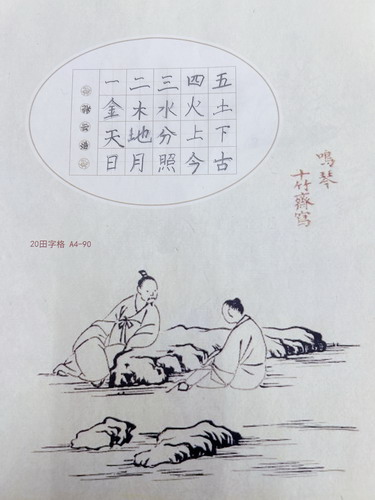 一二三四五
金木水火土
天地分上下
日月照今古
鳴琴
十竹齋寫
20田字格 A4-90